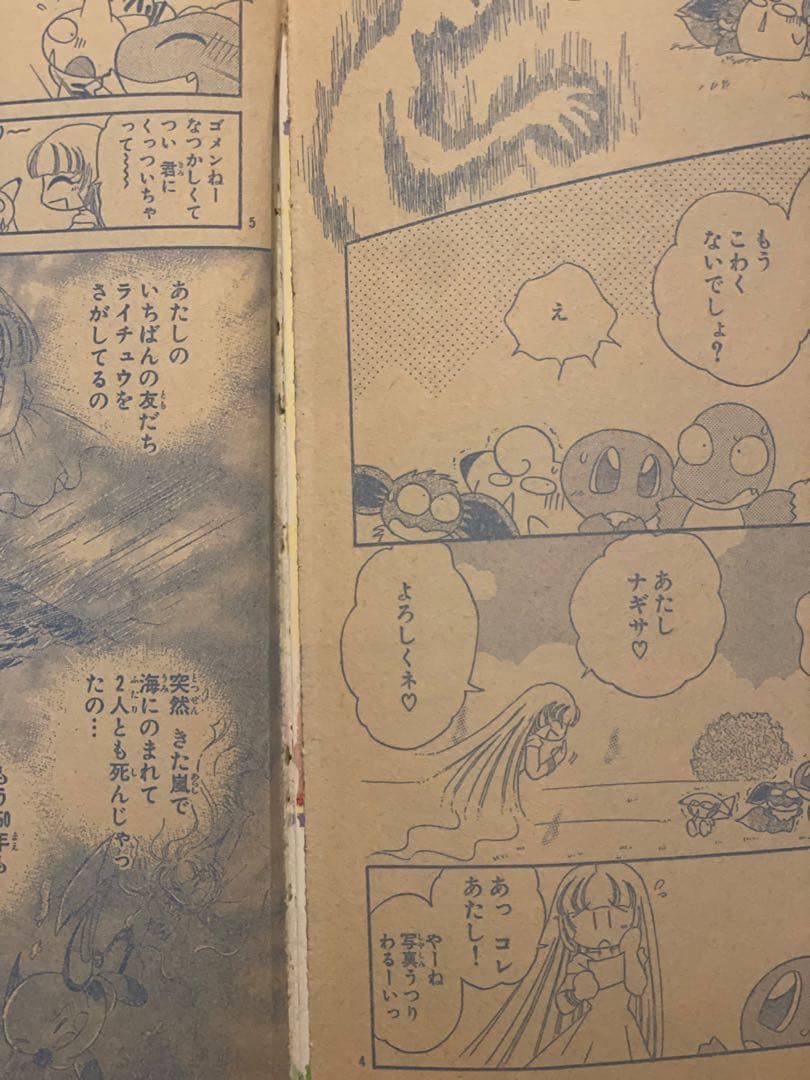 もう
こわく
ないでしょ?
え
あたし
ナギサ♡
よろしくネ♡
あっ コレ
あたし!
やーね
写真うつり
わるーいっ
4
ゴメンねー
なつかしくて
つい 君に
くっついちゃ
って〜〜
5
あたしの
いちばんの友だち
ライチュウを
さがしてるの
突然 きた嵐で
海にのまれて
2人とも死んじゃっ
たの…